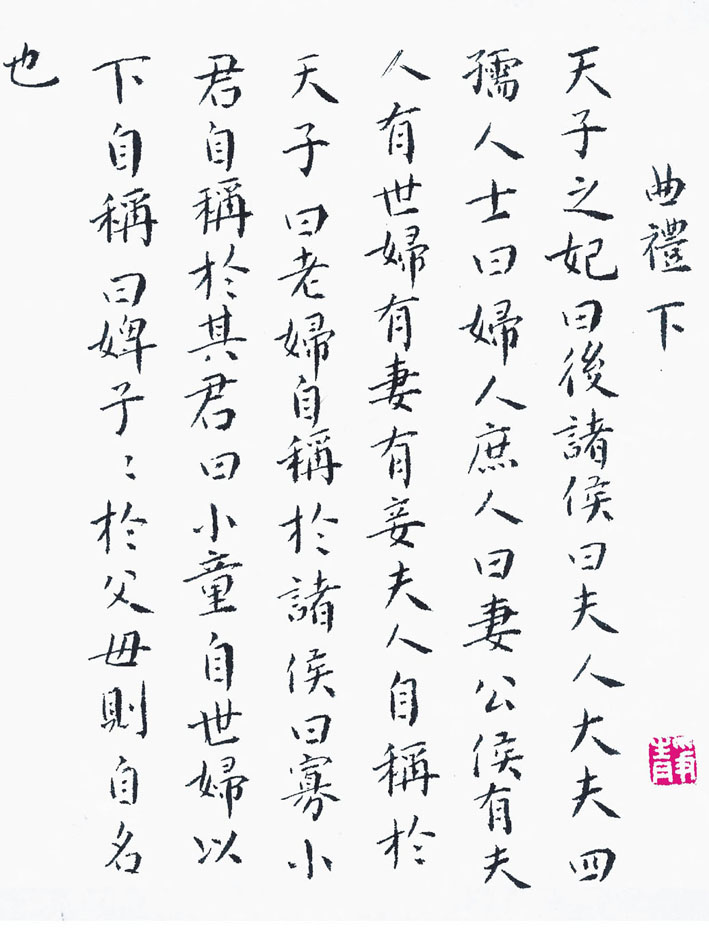 曲禮下
天子之妃曰後諸侯曰夫人大夫四
孺人士曰婦人庶人曰妻公侯有夫
人有世婦有妻有妾夫人自稱於
天子曰老婦自稱於諸侯曰寡小
君自稱於其君曰小童自世婦以
下自稱曰婢子〻於父母則自名
也